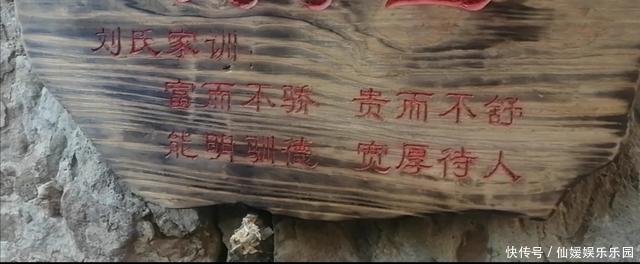 刘氏家训
富而不骄 贵而不舒
能明驯德 宽厚待人
快传号 / 仙媛娱乐乐园